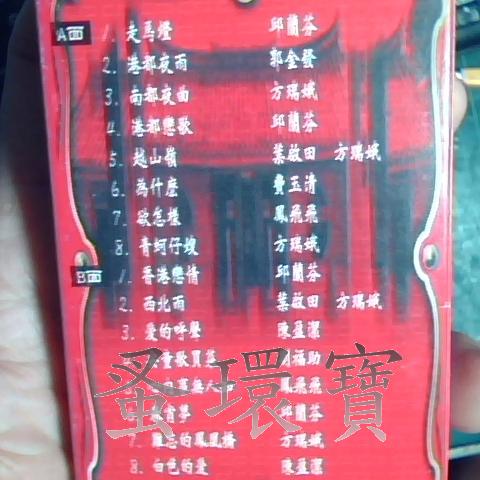 A面
1. 走馬燈 邱蘭芬
2. 港都夜雨 郭金發
3. 南都夜曲 方瑞娥
4. 港都戀歌 邱蘭芬
5. 越山嶺 葉啟田 方瑞娥
6. 為什麼 費玉清
7. 欲怎樣 鳳飛飛
8. 青蚵仔嫂 方瑞娥
B面
1. 香港戀情 邱蘭芬
2. 西北雨 葉啟田 方瑞娥
3. 愛的呼聲 陳盈潔
福助
鳳飛飛
邱蘭芬
7. 難忘的鳳凰橋 方瑞娥
8. 白色的愛 陳盈潔
蚤環寶